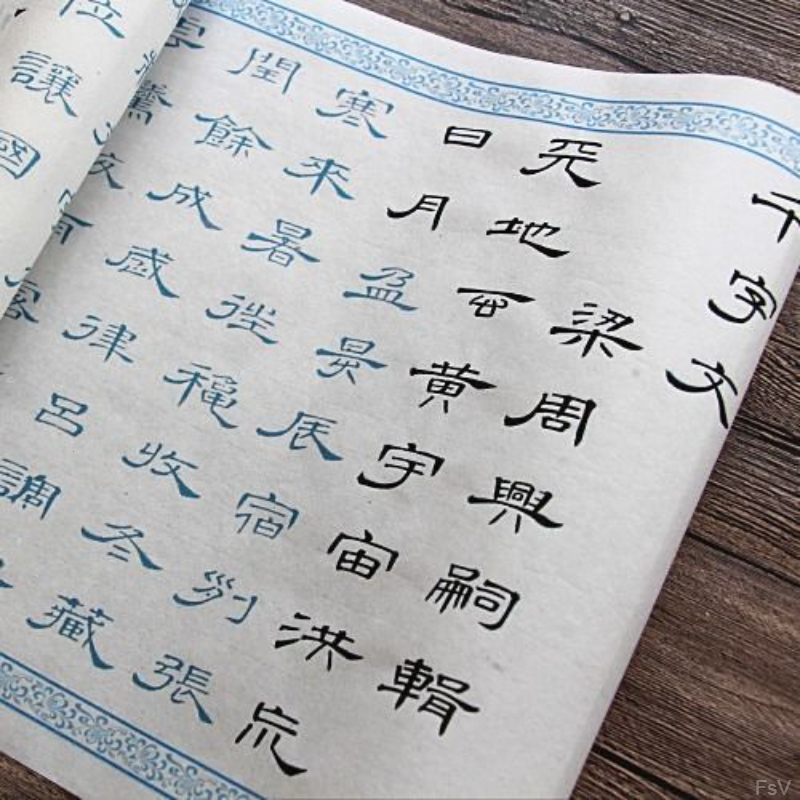 千字文
梁周興嗣輯
天地玄黃宇宙洪荒
日月盈昃辰宿列張
寒來暑往穐收冬藏
閏餘成歲律呂調
位讓國